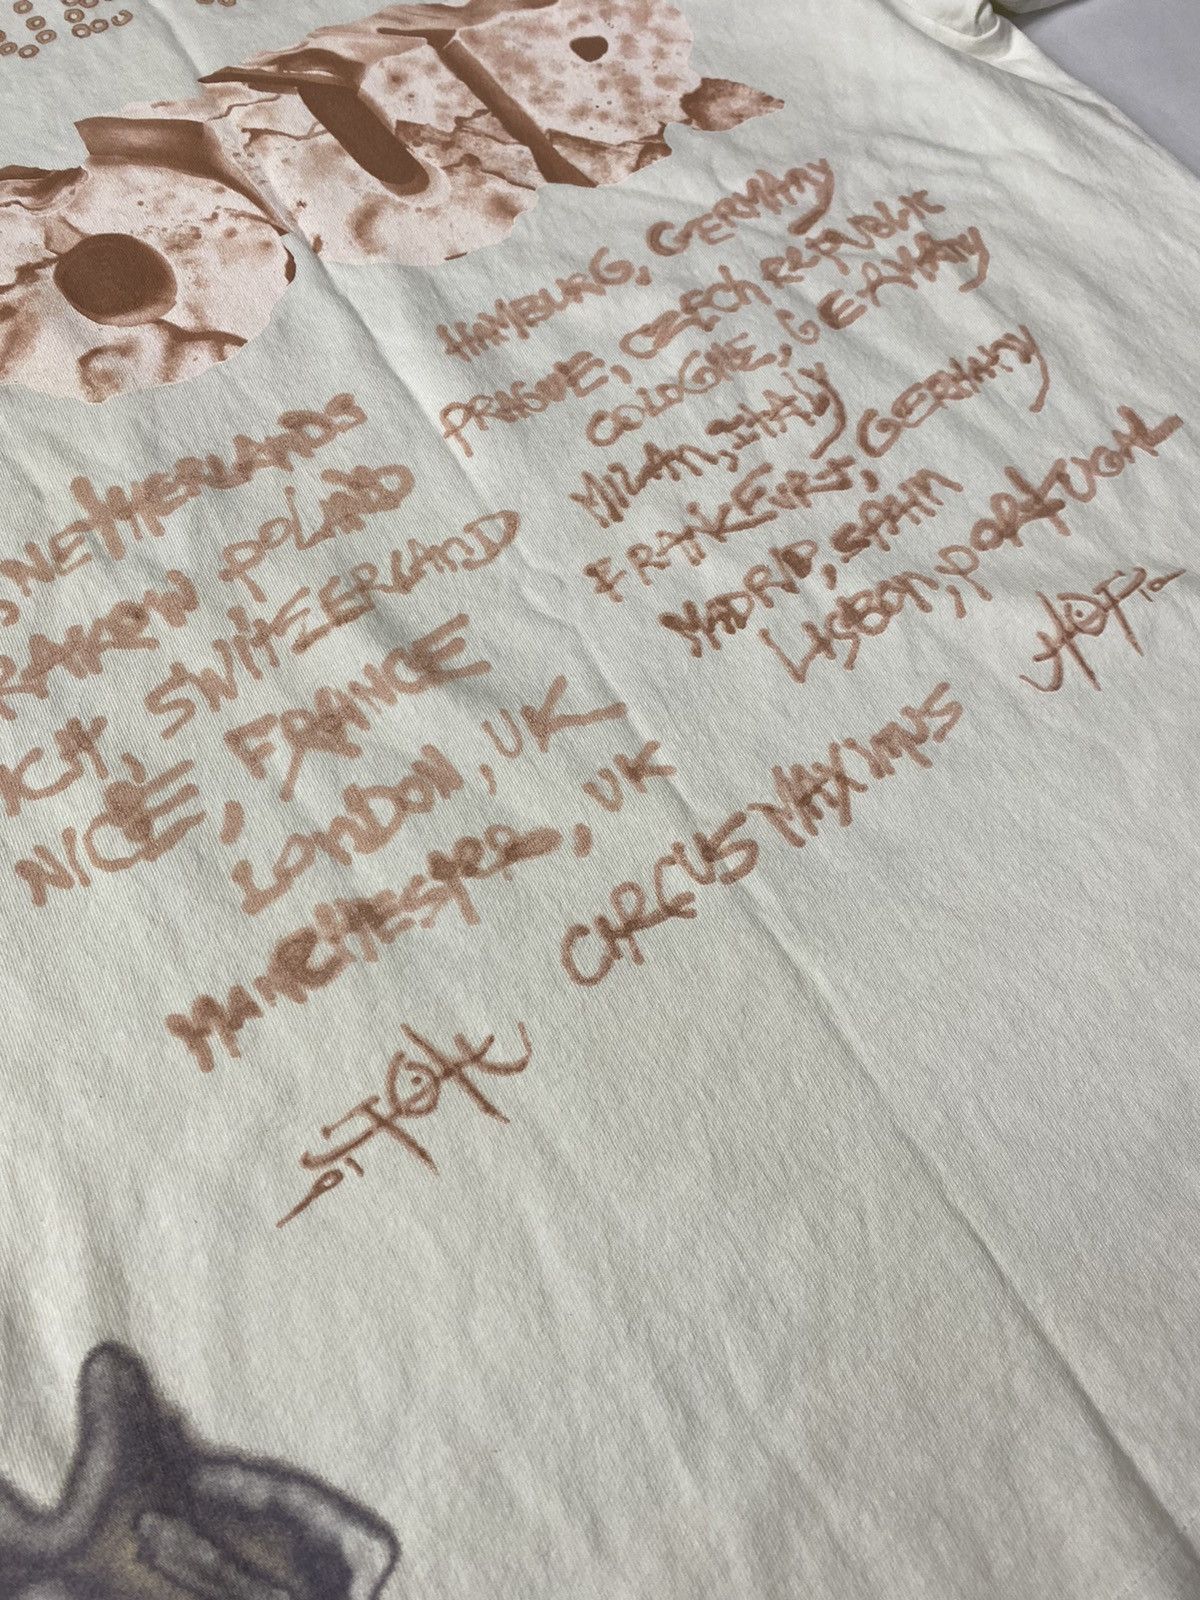 NETHERLANDS
POLAND
SWITEERLAND
NICE, FRANCE
LONDON, UK
MANCHESTER, UK
HAMBURG, GERMANY
PRAGUE, CZECH REPUBLIC
COLOGNE, GERMANY
MILAN, ITALY
FRANKFURT, GERMANY
MADRID, SPAIN
LISBON, PORTUGAL
CIRCUS MAXIMUS